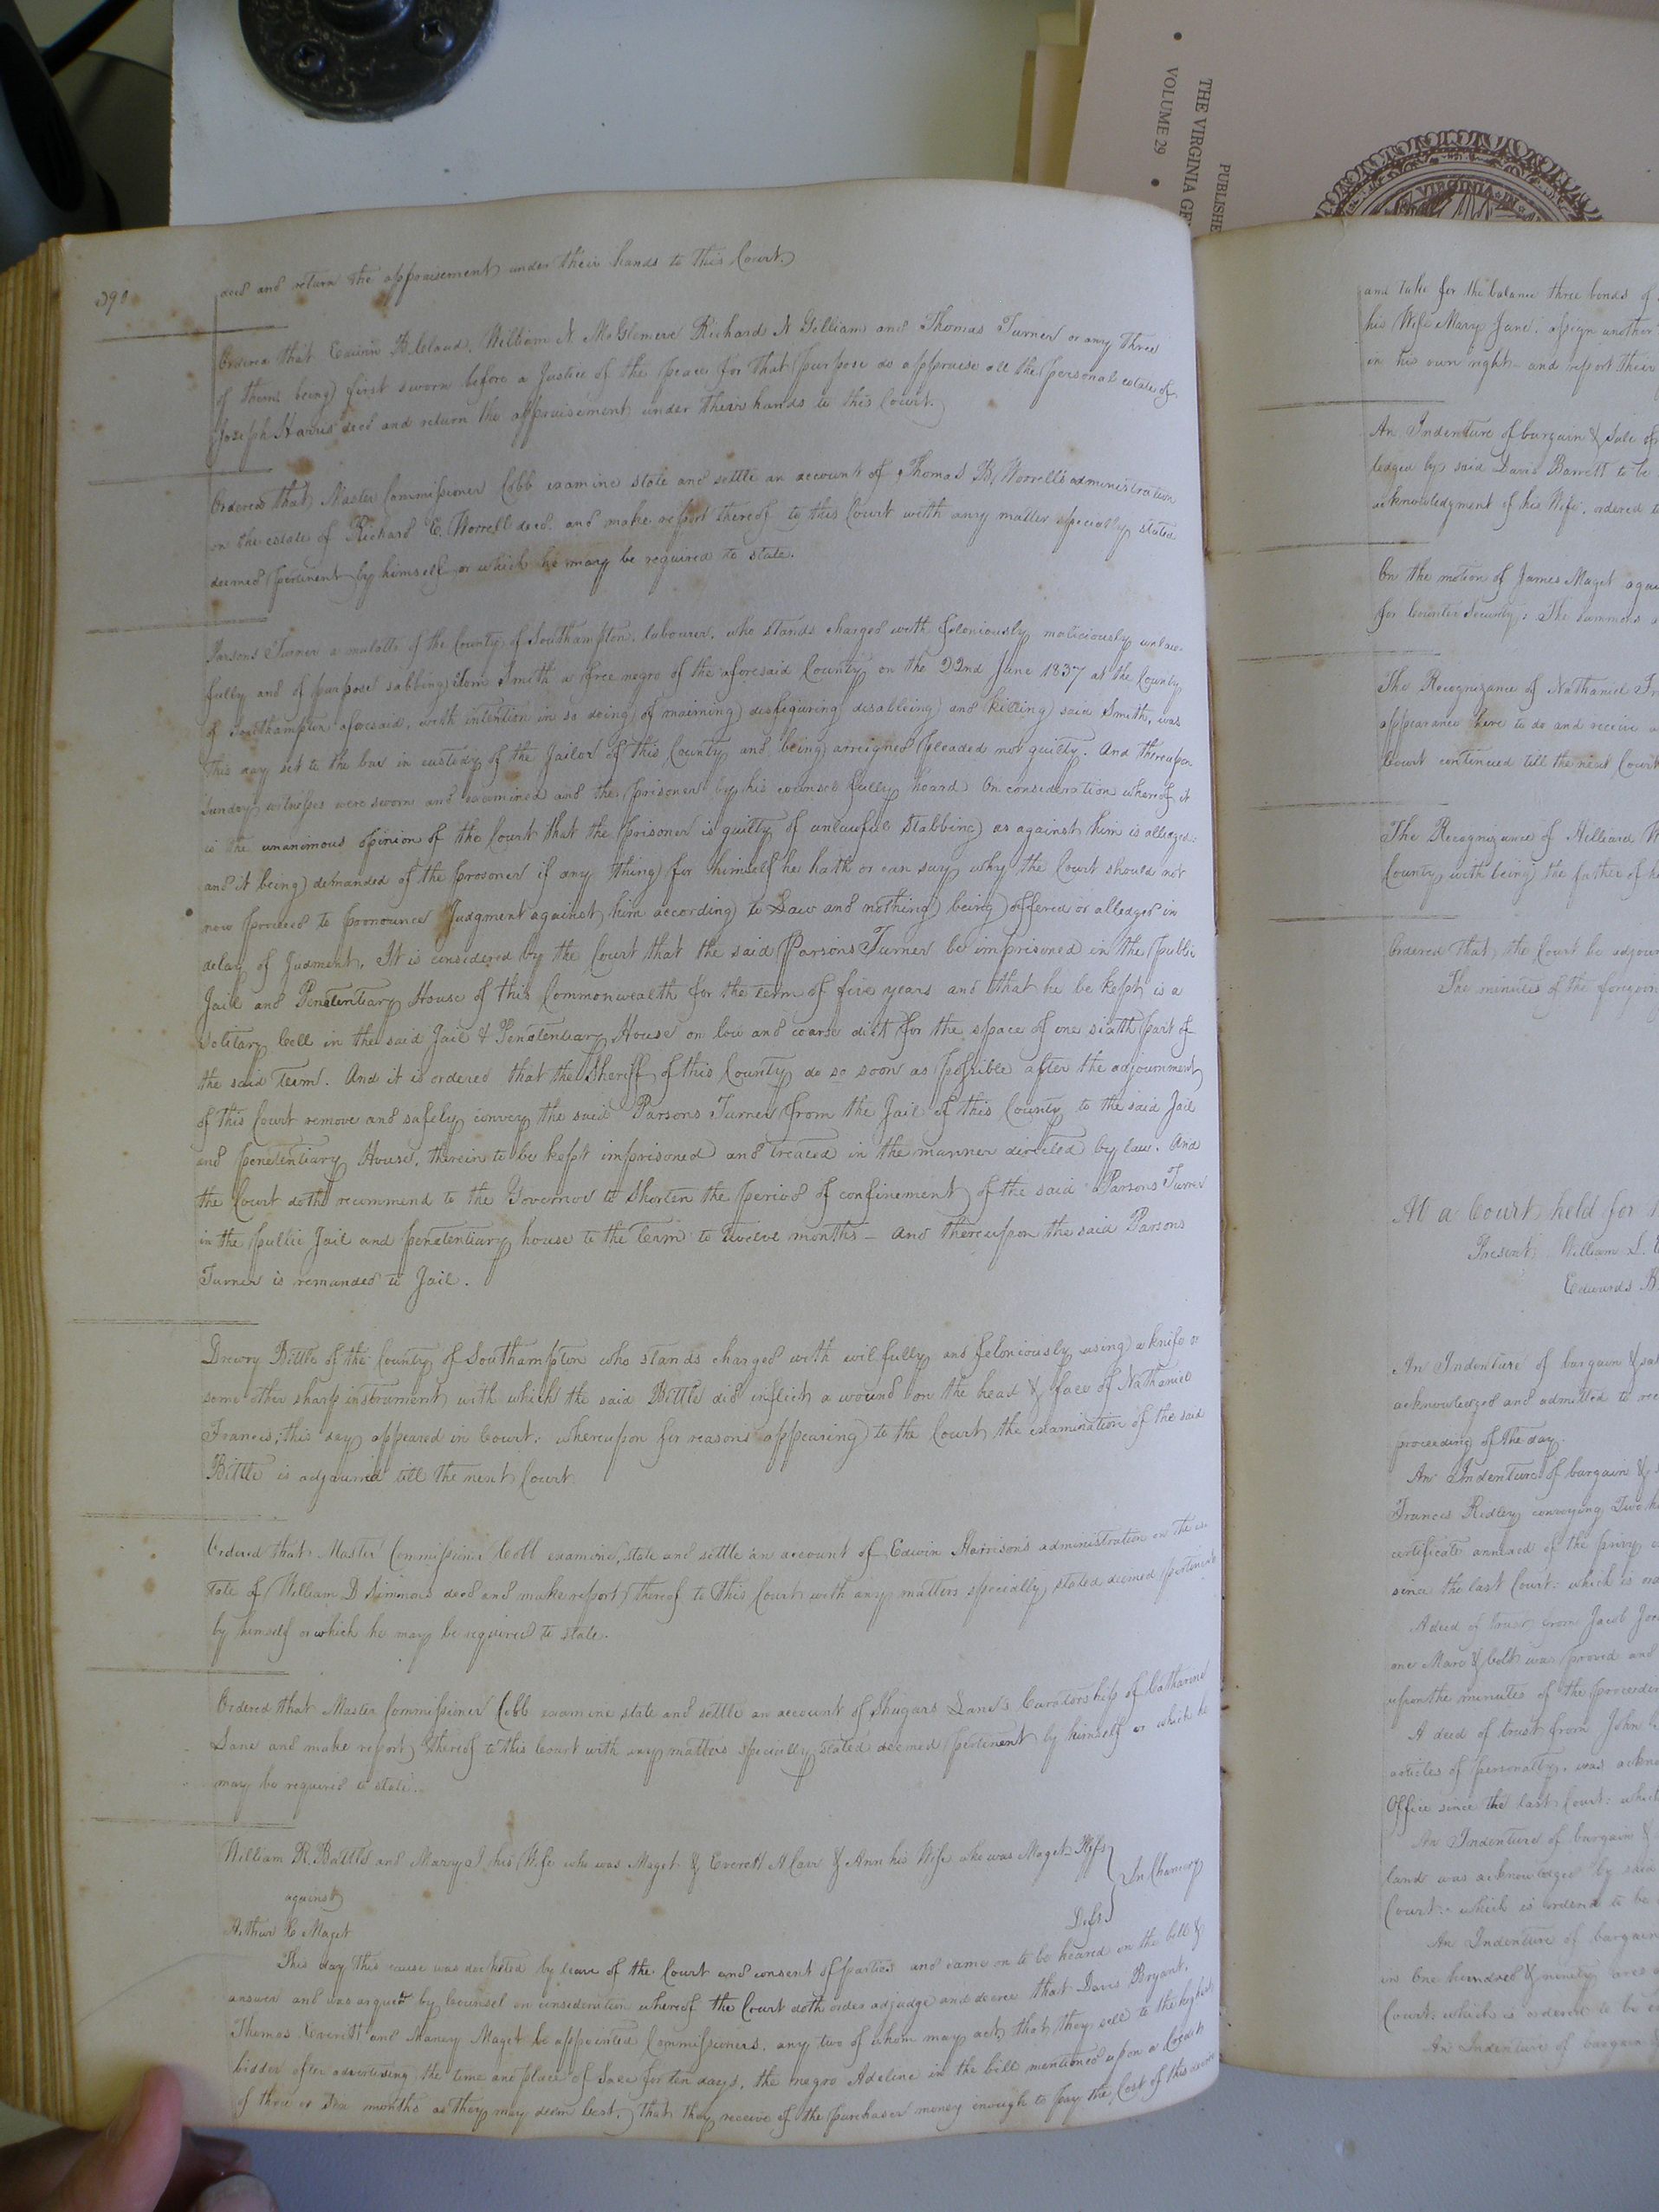 390
decd and return the appraisement under their hands to this Court.
Ordered that William N. McGlemere Richard N Gilliam and Thomas Turner or any three
of them being first sworn before a Justice of the peace for that purpose do appraise all the personal estate of
Joseph Harris decd and return the appraisement under their hands to this Court.
Ordered that Master Commissioner Cobb examine state and settle an account of Thomas B. Worrell's administration
on the estate of Richard E. Worrell decd. and make report thereof to this Court with any matter specially stated
deemed pertinent by himself or which he may be required to state.
Parsons Turner a mulatto of the County of Southampton, labourer, who stands charged with feloniously maliciously unlaw-
fully and of purpose stabbing Smith a free negro of the aforesaid County on the 22nd June 1837 at the County
of Southampton aforesaid, with intention in so doing of maiming disfiguring disableing and killing said Smith, was
this day set to the bar in custody of the Jailor of this County and being arreigned pleaded not guilty. And thereupon
sundry witnesses were sworn and examined and the prisoner by his counsel fully heard On consideration whereof it
is the unanimous opinion of the Court that the prisoner is guilty of unlawful stabbing as against him is alledged:
and it being demanded of the prosoner if any thing for himself he hath or can say why the Court should not
now proceed to pronounce Judgment against him according to Law and nothing being offered or alledged in
delay of Judment, It is considered by the Court that the said Parsons Turner be imprisoned in the public
Jail and Penetentiary House of this Commonwealth for the term of five years and that he be kept is a
Solitary Cell in the said Jail & Penetentiary House on low and coarse diet for the space of one sixth part of
the said Term. And it is ordered that the Sheriff of this County do so soon as possible after the adjournment
of this Court remove and safely convey the said Parsons Turner from the Jail of this County to the said Jail
and penetentiary House, therein to be kept imprisoned and treated in the manner directed by law. And
the Court doth recommend to the Governor to Shorten the period of confinement of the said Parsons Turner
in the public Jail and penetentiary house to the Term to Twelve months – And thereupon the said Parsons
Turner is remanded to Jail.
Drewry Bittle of the County of Southampton who stands charged with wilfully and feloniously using a knife or
some other sharp instrument with which the said Bittle did inflict a wound on the head & face of Nathaniel
Francis; this day appeared in Court: whereupon for reasons appearing to the Court the examination of the said
Bittle is adjourned till the next Court
Ordered that Master Commissioner Cobb examine, state and settle an account of Edwin Harrison's administration on the es-
tate of William D Simmons decd and make report thereof to this Court with any matters specially stated deemed pertinent
by himself or which he may be required to state.
Ordered that Master Commissioner Cobb examine state and settle an account of Shugars Lane's Curatorship of Catharine
Lane and make report thereof to this Court with any matters specially stated deemed pertinent by himself or which he
may be required to state.
William R. Battle and Mary J his Wife who was Maget & Everett A Carr & Ann his Wife who was Maget Plffs
In Chancery
against
Arthur Maget Deft.
This day this cause was docketed by leave of the Court and consent of parties and came on to be heared on the bill &
answer and was argued by Counsel on consideration whereof the Court doth order adjudge and decree that Davis Bryant,
Thomas Everitt and Maney Maget be appointed Commissioners, any two of whom may act, that they sell to the highest
bidder after advertising the time and place of Sale for ten days, the negro Adeline in the bill mentioned upon a Credit
of three or Six months as they may deem best, that they receive of the purchaser money enough to pay the Cost of this decree
THE VIRGINIA GE
VOLUME 29
PUBLISHE
VIRGINIA
and take for the balance three bonds of
his Wife Mary Jane, assign another
in his own right – and report their
An Indenture of bargain & Sale
ledged by said Davis Barrett to be
acknowledgment of his Wife, ordered
On the motion of James Maget agai
for Counter Security: The Summons
The Recognizance of Nathaniel Fr
appearance here to do and receive
Court continued till the next Court
The Recognizance of Hilliard
County with being the father of
Ordered that the Court be adjour
The minutes of the foregoing
At a Court held for
Present, William
Edwards B
An Indenture of bargain & sal
acknowledged and admitted to rec
proceeding of the day.
An Indenture of bargain &
Francis Ridley conveying Two h
certificate annexed of the privy
since the last Court: which is ord
A deed of trust from Jacob
one Mare & Colt was proved and
upon the minutes of the proceedin
A deed of trust from John
articles of personalty, was ackno
Office since the last Court: which
An Indenture of bargain &
land was acknowledged by said
Court: which is ordered to be
An Indenture of bargain
One hundred & ninety acres
Court: which is ordered to be
An Indenture of bargain